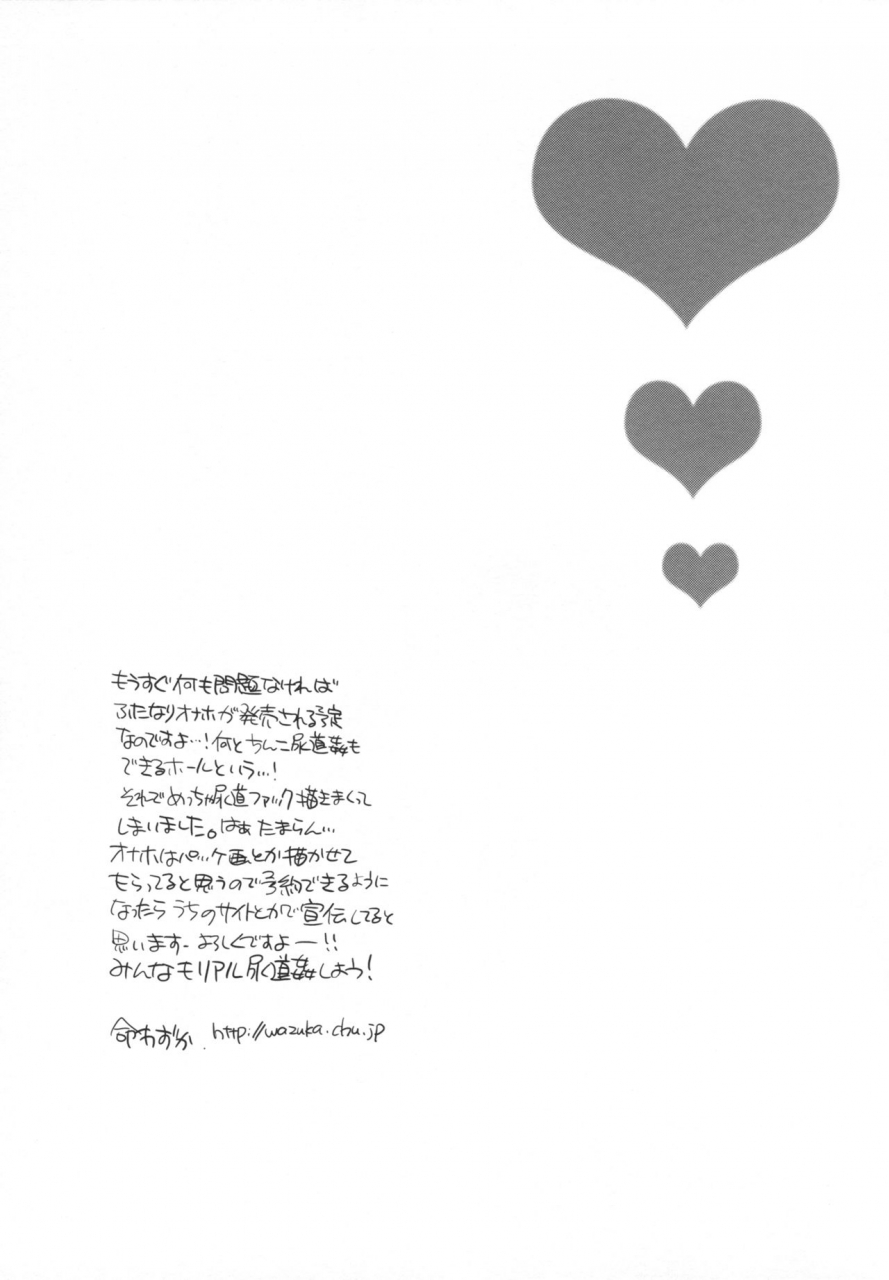 もうすぐ何も問題なければ
ふたなりオナホが発売される予定
なのですよ…!何とちんこ尿道姦も
できるホールという…!
それでめっちゃ尿道ファック描きまくって
しまいました。はぁたまらん…
オナホはパッケ画とか描かせて
もらってると思うので予約できるように
なったらうちのサイトとかで宣伝してると
思いますーよろしくですよー!!
みんなもリアル尿道姦しよう!
命わずか http://wazuka.chu.jp